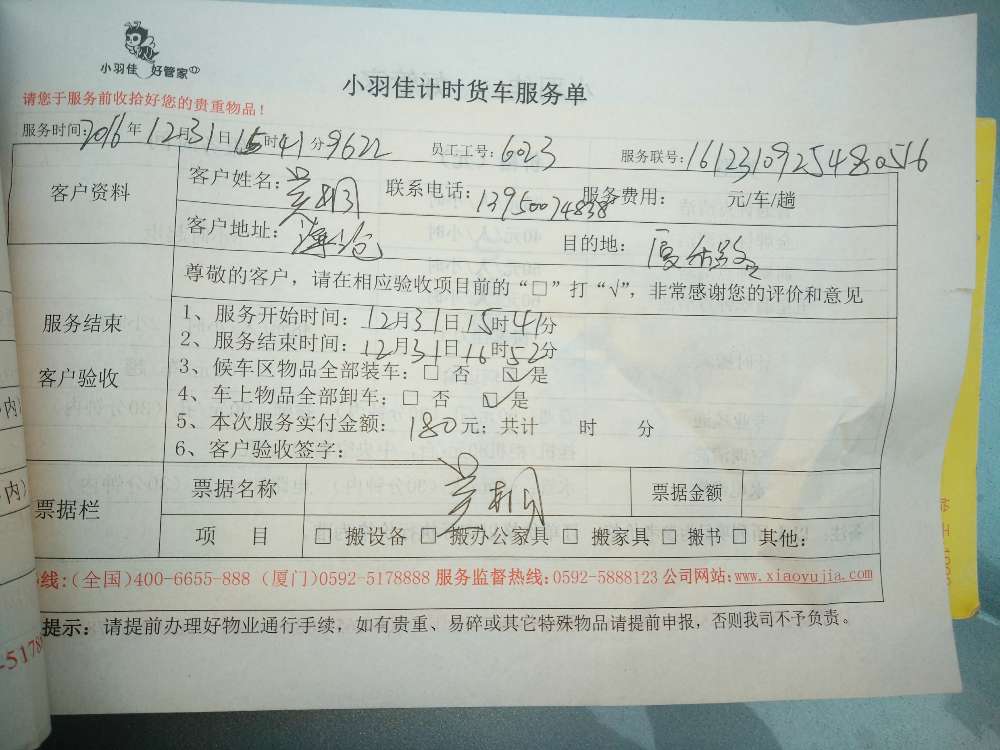 小羽佳 好管家
小羽佳计时货车服务单
请您于服务前收拾好您的贵重物品！
服务时间：2016年12月31日15时41分9622 员工工号：6023 服务联号：1612310925480516
客户资料 客户姓名： 联系电话：13950074838 服务费用： 元/车/趟
客户地址：海沧 目的地：
尊敬的客户，请在相应验收项目前的“□”打“√”，非常感谢您的评价和意见
服务结束
客户验收
1、服务开始时间：12月31日15时41分
2、服务结束时间：12月31日16时52分
3、候车区物品全部装车：□ 否 ☑是
4、车上物品全部卸车：□ 否 ☑是
5、本次服务实付金额：180元；共计 时 分
6、客户验收签字：
票据栏 票据名称 票据金额
项 目 □ 搬设备 □ 搬办公家具 □ 搬家具 □ 搬书 □ 其他：
线：(全国)400-6655-888 (厦门)0592-5178888 服务监督热线：0592-5888123 公司网站：www.xiaoyujia.com
提示：请提前办理好物业通行手续，如有贵重、易碎或其它特殊物品请提前申报，否则我司不予负责。
内）
内）
-5178